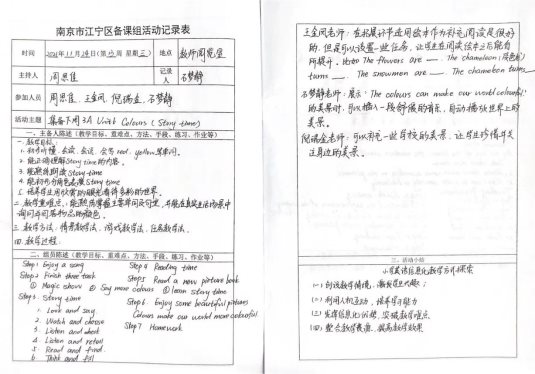 南京市江宁区备课组活动记录表
时间 2021年11月24日(第13周 星期三) 地点 教师阅览室
主持人 周思佳 记录人 石梦静
参加人员 周思佳、王金凤、倪瑞金、石梦静
活动主题 集备下周3A Unit Colours (Story time)
一、主备人陈述(教学目标、重难点、方法、手段、练习、作业等)
一. 教学目标:
1. 初步听懂、会读、会说、会写red, yellow等单词。
2. 能正确理解Story time的内容。
3. 能熟练朗读Story time
4. 能初步分角色表演Story time
5. 培养学生用欣赏的眼光看待多彩的世界。
二. 教学重难点: 能熟练掌握主要单词及句型,并能在真实生活场景中
询问并回答物品的颜色。
三. 教学方法: 情景教学法、游戏教学法、任务教学法
四. 教学过程:
二、组员陈述(教学目标、重难点、方法、手段、练习、作业等)
Step 1 Enjoy a song
Step 2 Finish three task
① Magic show ② Say more colours ③ learn story time
Step 3. Story time
1. Look and say
2. Watch and choose
3. Listen and check
4. Listen and retell
5. Read and find.
6. Think and fill
Step 4 Reading time
Step 5 Read a new picture book
Step 6. Enjoy some beautiful pictures
Colours make our world more colourful
Step 7 Homework
王金凤老师: 在拓展环节运用绘本作为补充阅读是很好
的,但是可以设置一些任务,让学生在阅读绘本之后能有
所提升。比如 The flowers are __. The chameleon (变色龙)
turns __. The snowmen are __. The chameleon turns __
石梦静老师: 展示 "The colours can make our world colourful"
的美景时,可以插入一段舒缓的音乐,自动播放世界上的
美景。
倪瑞金老师: 可以补充一些学校的美景,让学生珍惜并关
注身边的美景。
三、活动小结
小学英语信息化教学方式探索
(一) 创设教学情境,激发学习兴趣;
(二) 利用人机互动,培养学习能力
(三) 发挥信息化优势,突破教学难点
(四) 整合教学资源,提高教学效果